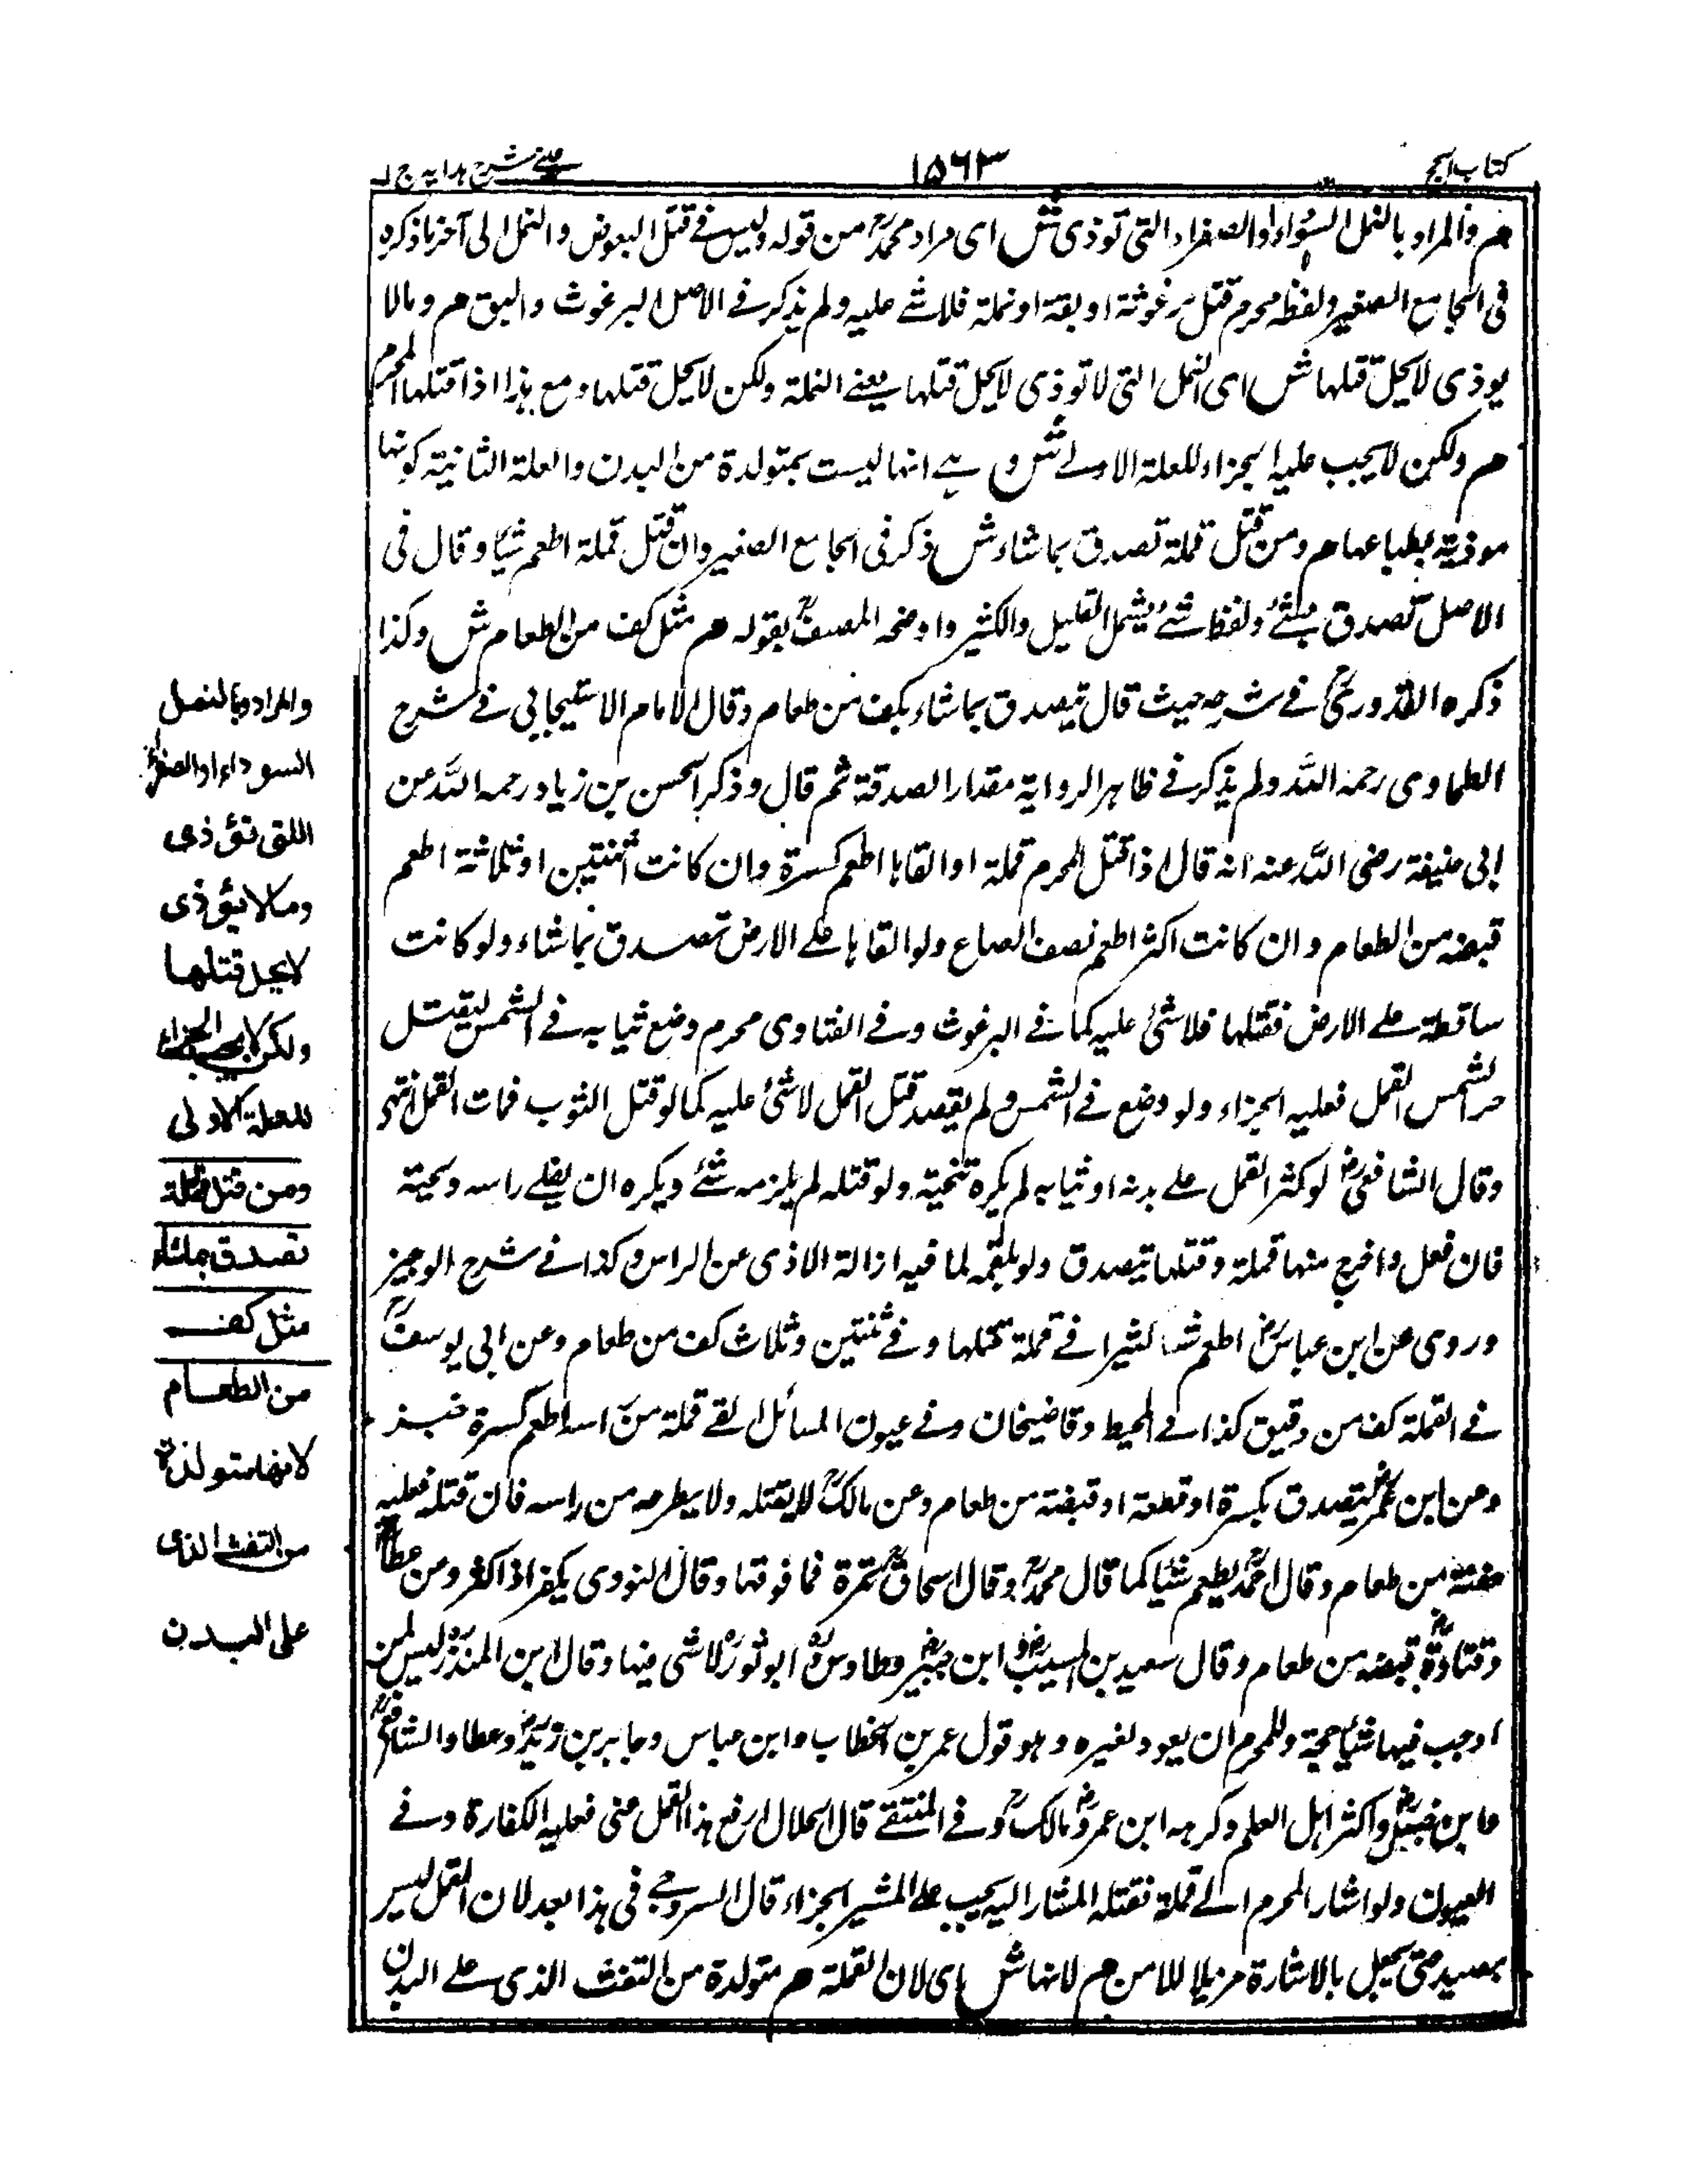 كتاب الحج
١٥٦٣
عيني شرح هدايه ج ١
م والمراد بالنمل السوداء او الصفراء التي توذى ش اى مراد محمدؒ من قوله وليس في قتل البعوض والنمل الى آخر ما ذكره
فى الجامع الصغير ولفظه محرم قتل برغوثة او بقة او نملة فلا شے عليه ولم يذكر في الاصل البرغوث والبق م وما لا
يوذى لا يحل قتلها ش اى النمل التى لا توذى لا يحل قتلها يعنے النملة ولكن لا يحل قتلها ومع هذا اذا قتلها المحرم
م ولكن لا يجب عليه الجزاء للعلة الاولے ش و هے انها ليست بمتولدة من البدن والعلة الثانية كونها
موذية بطباعها م ومن قتل قملة تصدق بما شاء ش ذكر فى الجامع الصغير وان قتل قملة اطعم شيأ وقال فى
الاصل تصدق بشئ ولفظ شئ يشمل القليل والكثير واوضحه المصنفؒ بقوله م مثل كف من الطعام ش وكذا
ذكره القدورىؒ في شرحه حيث قال تيصدق بما شاء بكف من طعام وقال الامام الاسبيجابي في شرح
الطحاوى رحمه الله ولم يذكر في ظاهر الرواية مقدار الصدقة ثم قال وذكر الحسن بن زياد رحمه الله عن
ابى حنيفة رضى الله عنه انه قال اذا قتل المحرم قملة او القاها اطعم كسرة وان كانت اثنتين او ثلاثة اطعم
قبضه من الطعام وان كانت اكثر اطعم نصف الصاع ولو القاها علے الارض تصدق بما شاء ولو كانت
ساقطة علے الارض فقتلها فلا شئ عليه كما في البرغوث وفے الفتاوى محرم وضع ثيابه فے الشمس ليقتل
حر الشمس القمل فعليه الجزاء ولو وضع فے الشمس ولم يقصد قتل القمل لا شئ عليه كما لو قتل الثوب فمات القمل انتهى
وقال الشافعىؒ لو كثر القمل علے بدنه او ثيابه لم يكره تنحيته ولو قتله لم يلزمه شئے ويكره ان يفلے راسه ولحيته
فان فعل واخرج منها قملة وقتلها تيصدق ولو بلقمة لما فيه ازالة الاذى عن الراس وكذا فے شرح الوجيز
وروى عن ابن عباسؓ اطعم شيا كثيرا فے قملة قتلها وفے ثنتين وثلاث كف من طعام وعن ابى يوسفؒ
فے القملة كف من دقيق كذا فى المحيط وقاضيخان وفے عيون المسائل القے قملة من راسه اطعم كسرة خبز
وعن ابن عمرؓ يتصدق بكسرة او قطعة او قبضة من طعام وعن مالكؒ لا يقتله ولا يطرحه من راسه فان قتله فعليه
حفنة من طعام وقال احمدؒ يطعم شيأ كما قال محمدؒ وقال اسحاقؒ تمرة فما فوقها وقال النووى يكفر اذا كثر ومن عطاءؒ
وقتادةؓ قبضه من طعام وقال سعيد بن المسيبؓ و ابن جبيرؓ وطاوسؒ و ابو ثورؒ لا شى فيها وقال ابن المنذرؒ ليس لمن
اوجب فيها شيأ حجة وللمحرم ان يعود لغيره وهو قول عمر بن الخطاب وابن عباس وجابر بن زيدؓ وعطا والشافعىؒ
وابن حنبلؒ واكثر اهل العلم وكرهه ابن عمرؓ و مالكؒ وفے المنتقے قال لحلال ارفع هذا القمل عنى فعليه الكفارة وفے
العيون ولو اشار المحرم الے قملة فقتله المشار اليه يجب علے المشير الجزاء قال السروجے فى هذا بعد لان القمل ليس
بصيد حتى يجعل بالاشارة مزيلا للامن م لانها ش اى لان القملة م متولدة من التفث الذى علے البدن
والمراد بالنمل
السوداء او الصفراء
اللتى تؤذى
وما لا يؤذى
لا يحل قتلها
ولكن لا يجب الجزاء
للعلة الاولى
ومن قتل قملة
تصدق بما شاء
مثل كف
من الطعام
لانها متولدة
من التفث الذى
على البدن